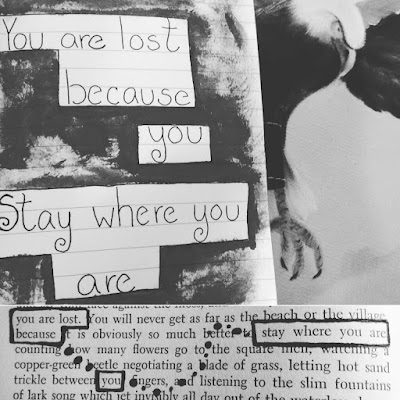 You are lost
because
you
Stay where you
are
you are lost. You will never get as far as the beach or the village
because it is obviously so much better to stay where you are
counting how many flowers go to the square inch, watching a
copper-green beetle negotiating a blade of grass, letting hot sand
trickle between you fingers, and listening to the slim fountains
of lark song which jet invisibly all day out of the